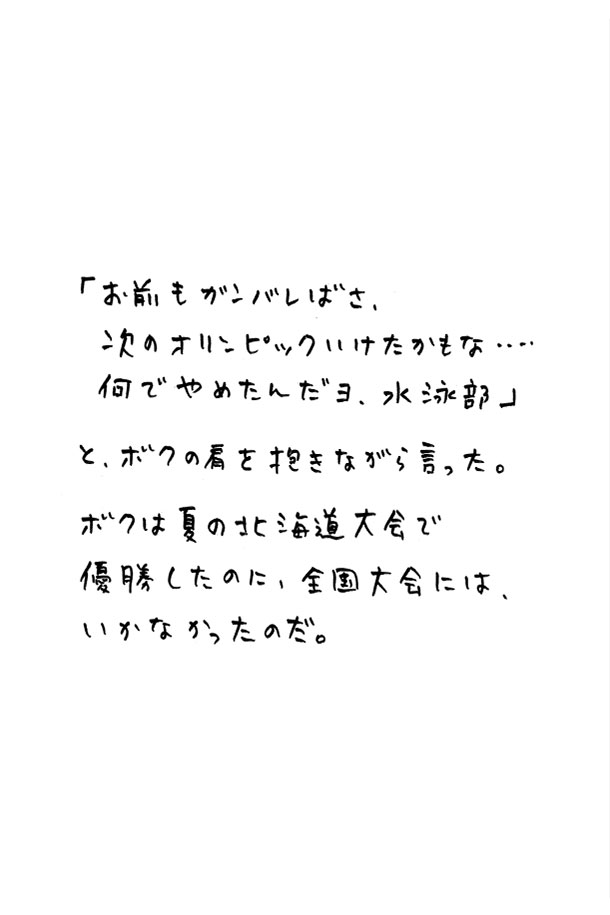 「お前もガンバレばさ、
次のオリンピックいけたかもな‥‥
何でやめたんだヨ、水泳部」
と、ボクの肩を抱きながら言った。
ボクは夏の北海道大会で
優勝したのに、全国大会には、
いかなかったのだ。